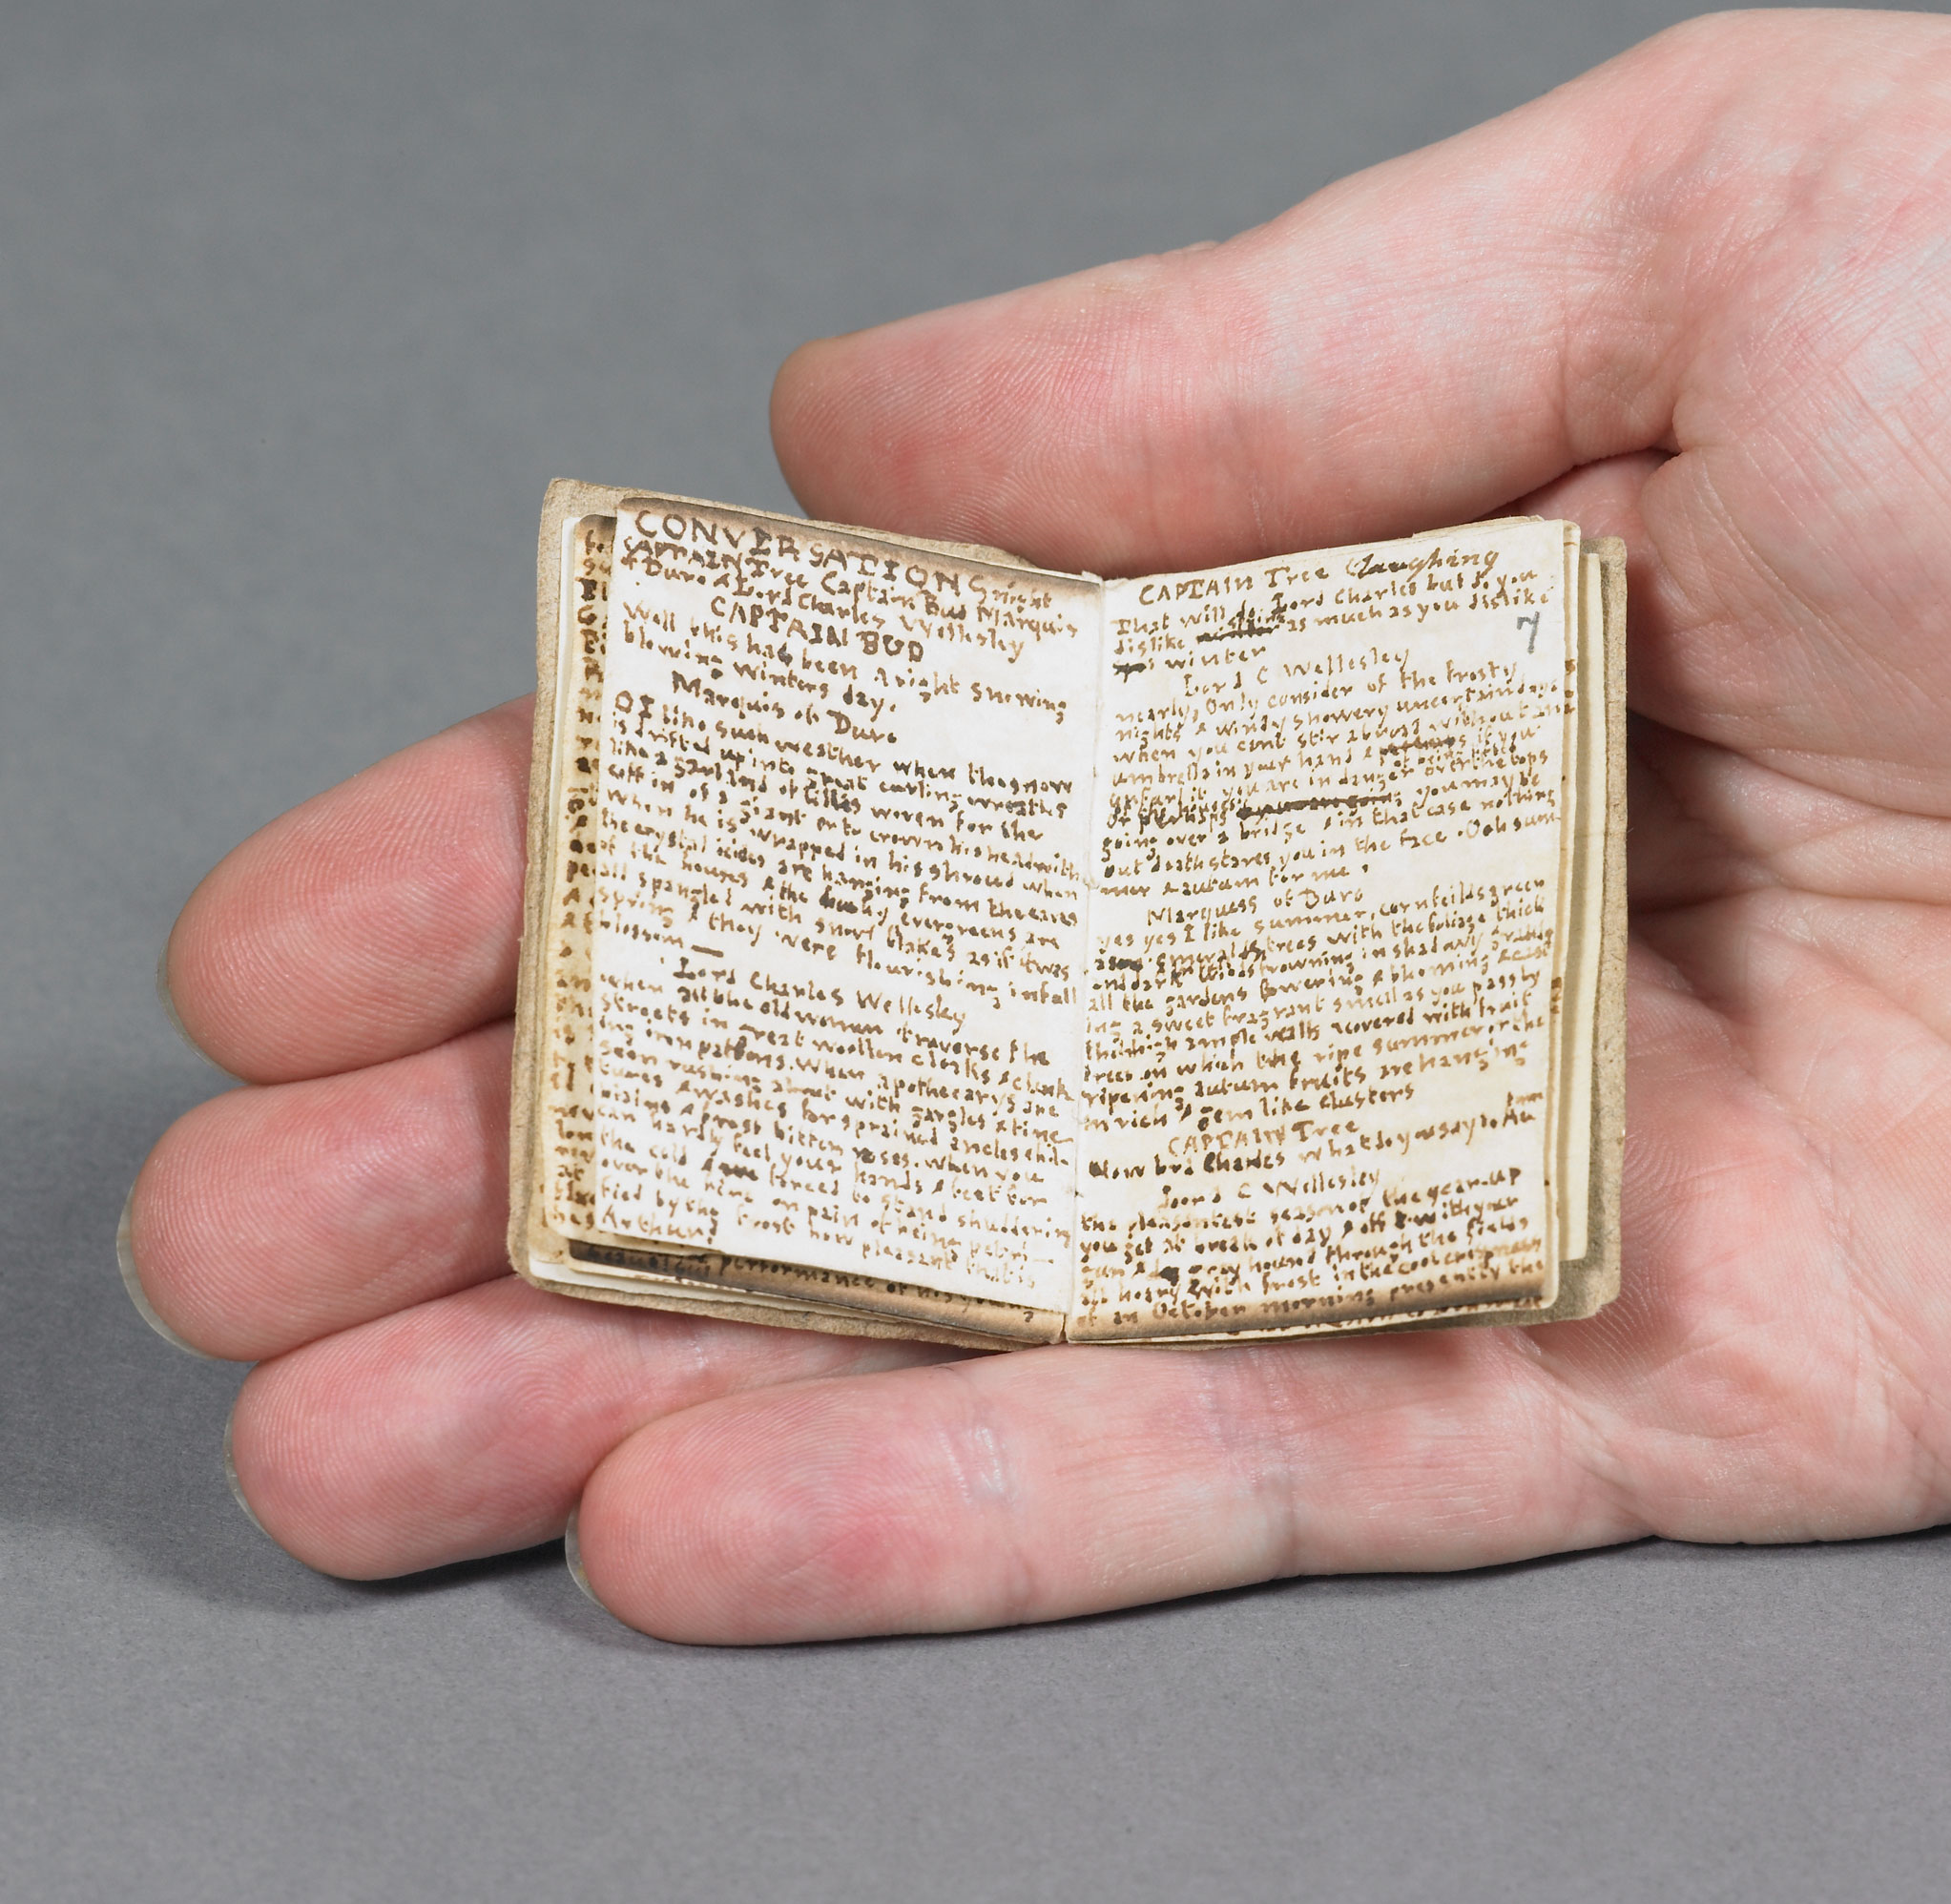 CONVERSATIONS night
CAPTAIN Tree Captain Bud Marquis
of Duro & Lord Charles Wellesley
CAPTAIN BUD
Well this has been a right snowing
blowing winters day.
Marquis of Duro
O I like such weather when the snow
is drifted up into great curling wreaths
like a garland of lillies woven for the
coffin of a giant or to crown his head with
when he is wrapped in his shroud when
the crystal icicles are hanging from the eaves
of the houses & the bushy evergreens are
all spangled with snow flakes as if twas
spring & they were flourishing in full
blossom —
Lord Charles Wellesley
when all the old woman traverse the
streets in great woollen cloaks & clank
ing iron pattens. When apothecarys are
seen rushing about with gargles & tinc
tures & washes for sprained ancles chil-
blains & frost bitten noses. when you
can hardly feel your hands & feet for
the cold & forced to stand shuddering
over the fire on pain of being petri—
fied by the frost how pleasant that is
Arthur?
performance of his young
CAPTAIN Tree laughing
That will do Lord Charles but do you
dislike as much as you dislike
winter
7
Lord C Wellesley
nearly, Only consider of the frosty
nights & windy showery uncertain days
when you cant stir abroad without an
umbrella in your hand & if you
unfurl it you are in danger of going over the tops
of houses or perhaps you may be
going over a bridge & in that case nothing
but death stares you in the face. Ooh sum
mer & autumn for me !
Marquess of Duro
yes yes I like summer, cornfeilds green
as emeralds trees with the foliage thick
and dark woods frowning in shadowy
all the gardens flowering & blooming & cast
ing a sweet fragrant smell as you pass by
the high ample walls covered with fruit
trees on which the ripe summer or the
ripening autumn fruits are hanging
in rich & gem like clusters
CAPTAIN Tree
Now Lord Charles what do you say to Au
tumn
Lord C Wellesley
the pleasantest season of the year. up
you get at break of day & off with your
gun & gray hound through the fields
all hoary with frost in the cool crispness
of an October morning presently the